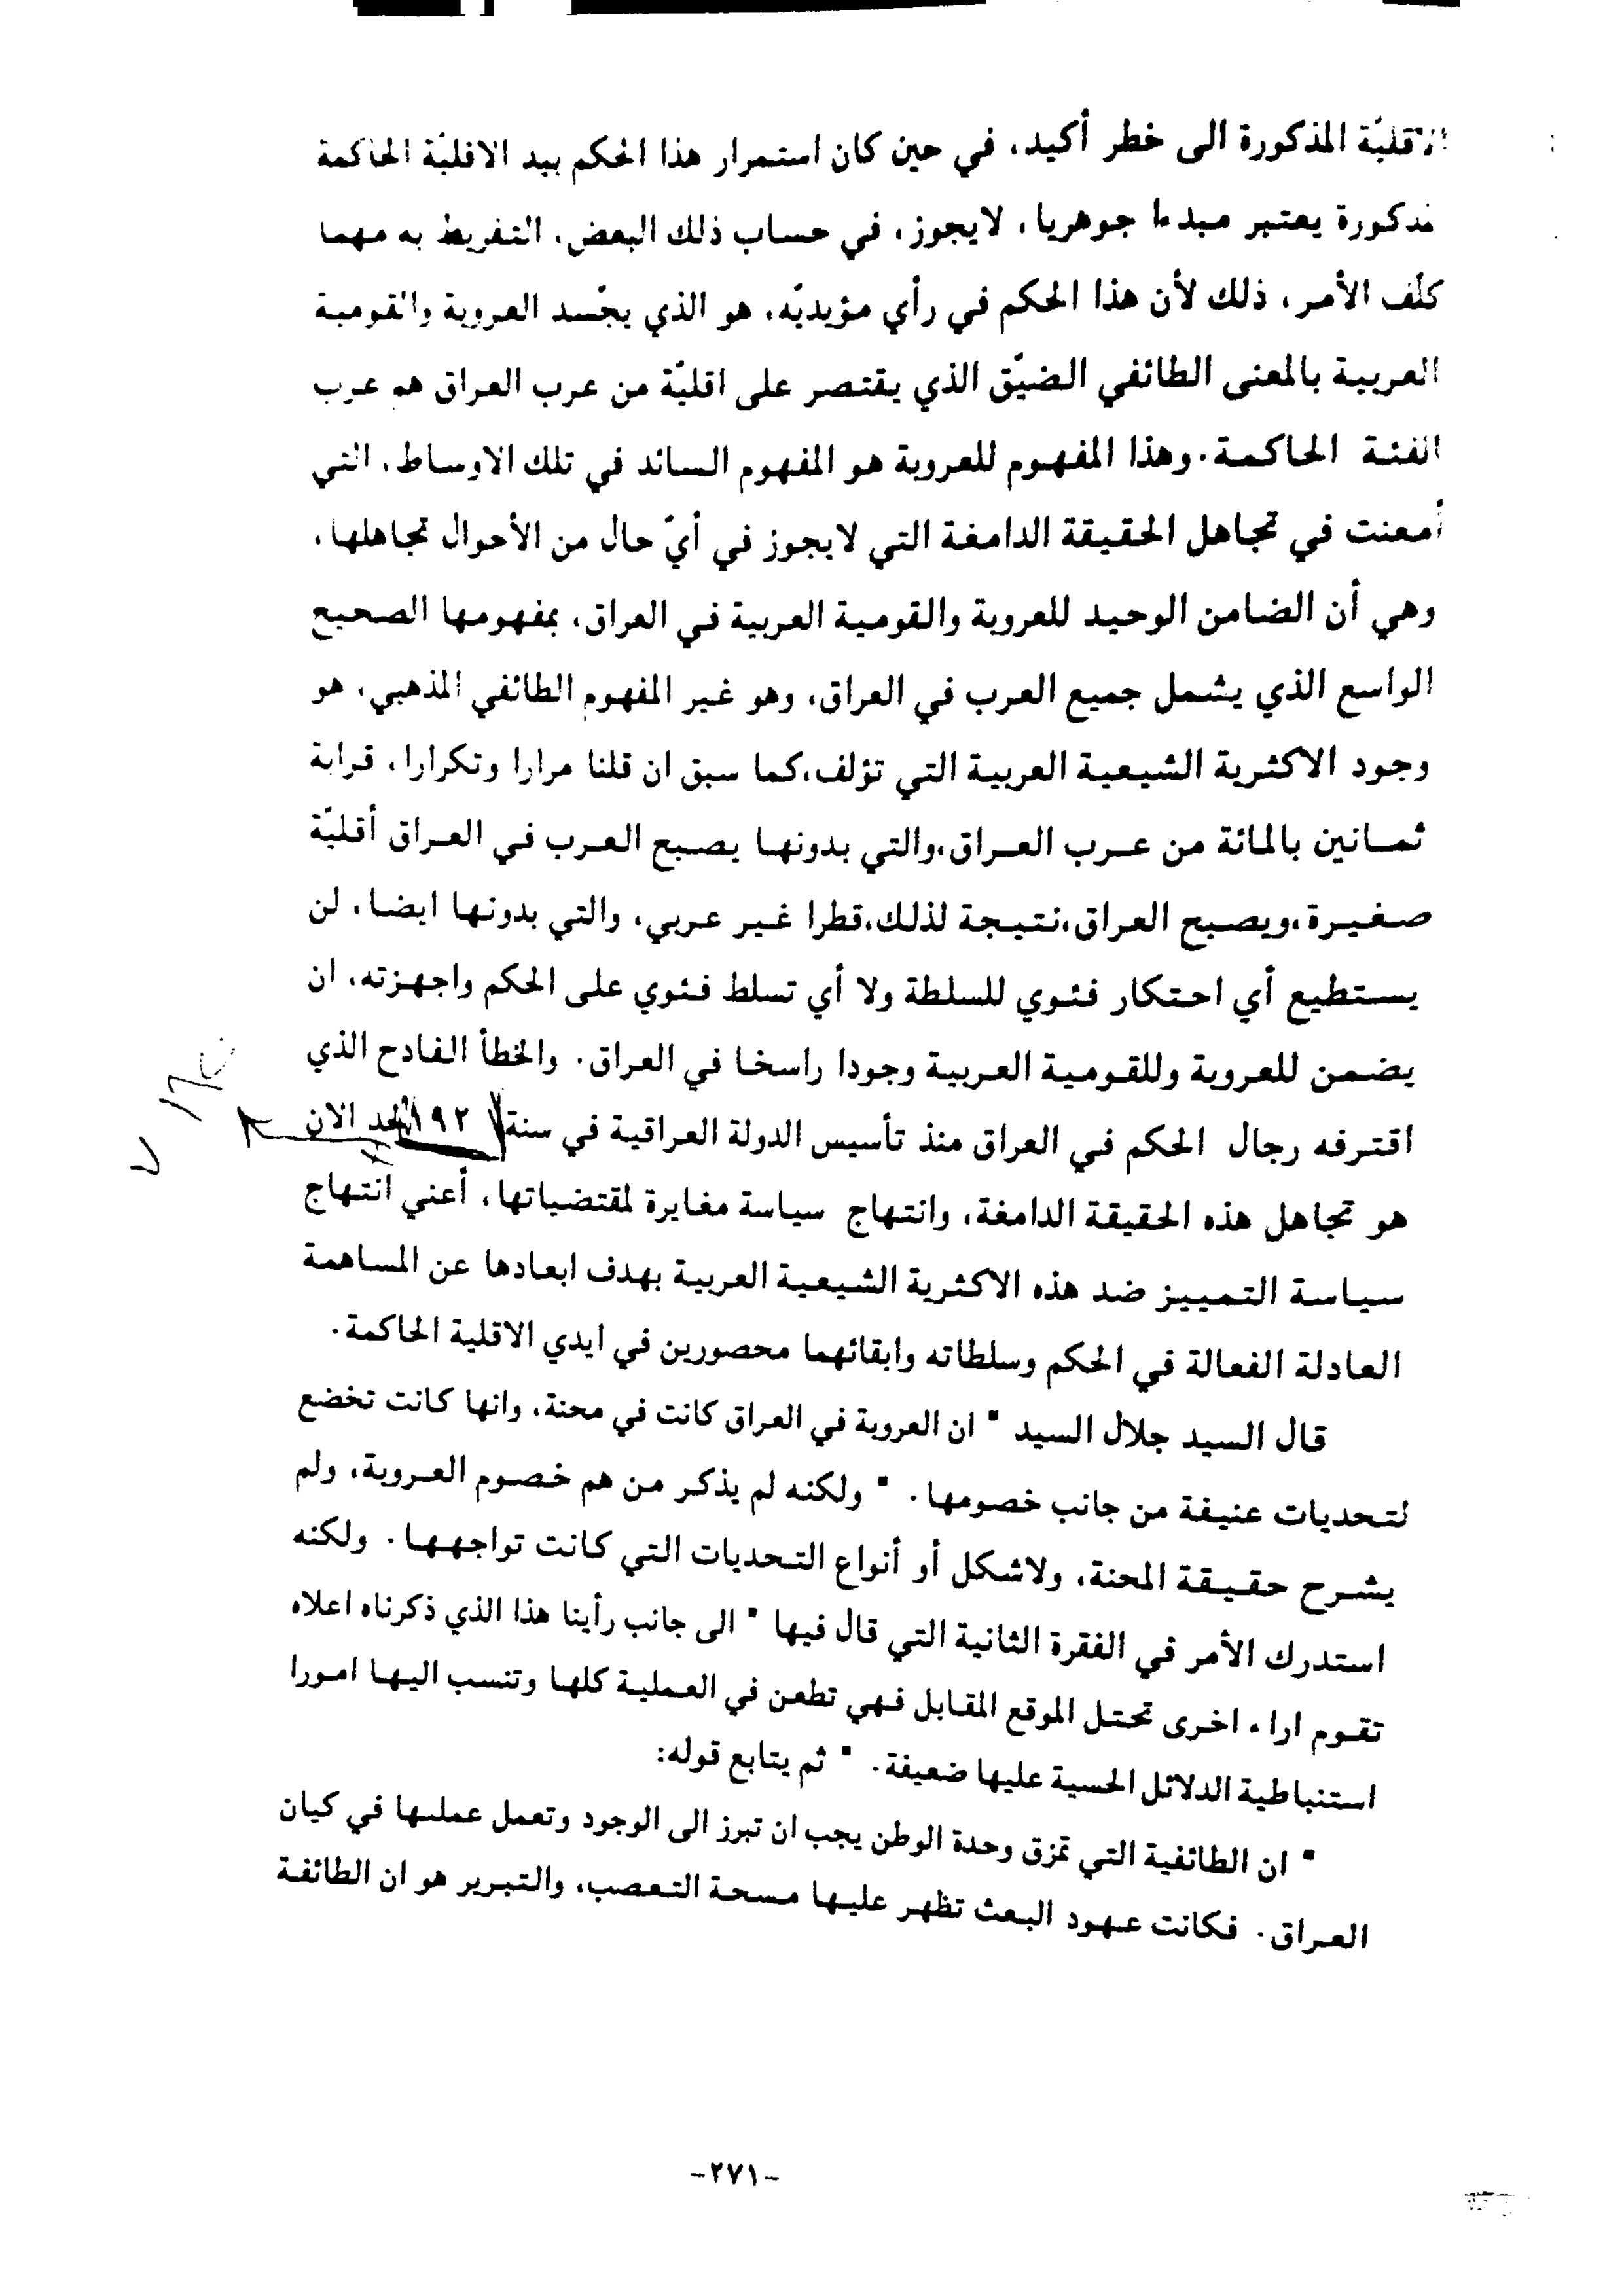 الاقليّة المذكورة الى خطر أكيد، في حين كان استمرار هذا الحكم بيد الاقليّة الحاكمة
مذكورة يعتبر مبدءا جوهريا، لايجوز، في حساب ذلك البعض، التفريط به مهما
كلّف الأمر، ذلك لأن هذا الحكم في رأي مؤيديّه، هو الذي يجّسد العروبة والقومية
العربية بالمعنى الطائفي الضيّق الذي يقتصر على اقليّة من عرب العراق هم عرب
الفئة الحاكمة. وهذا المفهوم للعروبة هو المفهوم السائد في تلك الاوساط، التي
أمعنت في تجاهل الحقيقة الدامغة التي لايجوز في أيّ حال من الأحوال تجاهلها،
وهي أن الضامن الوحيد للعروبة والقومية العربية في العراق، بمفهومها الصحيح
الواسع الذي يشمل جميع العرب في العراق، وهو غير المفهوم الطائفي المذهبي، هو
وجود الاكثرية الشيعية العربية التي تؤلف،كما سبق ان قلنا مرارا وتكرارا، قرابة
ثمانين بالمائة من عرب العراق،والتي بدونها يصبح العرب في العراق أقليّة
صغيرة،ويصبح العراق،نتيجة لذلك،قطرا غير عربي، والتي بدونها ايضا، لن
يستطيع أي احتكار فئوي للسلطة ولا أي تسلط فئوي على الحكم واجهزته، ان
يضمن للعروبة وللقومية العربية وجودا راسخا في العراق. والخطأ الفادح الذي
اقترفه رجال الحكم في العراق منذ تأسيس الدولة العراقية في سنة ١٩٢١ لحد الان
هو تجاهل هذه الحقيقة الدامغة، وانتهاج سياسة مغايرة لمقتضياتها، أعني انتهاج
سياسة التمييز ضد هذه الاكثرية الشيعية العربية بهدف ابعادها عن المساهمة
العادلة الفعالة في الحكم وسلطاته وابقائهما محصورين في ايدي الاقلية الحاكمة.
قال السيد جلال السيد " ان العروبة في العراق كانت في محنة، وانها كانت تخضع
لتحديات عنيفة من جانب خصومها. " ولكنه لم يذكر من هم خصوم العروبة، ولم
يشرح حقيقة المحنة، ولاشكل أو أنواع التحديات التي كانت تواجهها. ولكنه
استدرك الأمر في الفقرة الثانية التي قال فيها " الى جانب رأينا هذا الذي ذكرناه اعلاه
تقوم اراء اخرى تحتل الموقع المقابل فهي تطعن في العملية كلها وتنسب اليها امورا
استنباطية الدلائل الحسية عليها ضعيفة. " ثم يتابع قوله:
" ان الطائفية التي تمزق وحدة الوطن يجب ان تبرز الى الوجود وتعمل عملها في كيان
العراق. فكانت عهود البعث تظهر عليها مسحة التعصب، والتبرير هو ان الطائفة
-٢٧١-